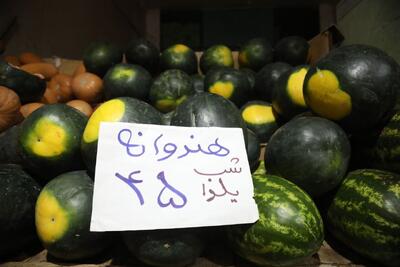 هندوانه
شب
یلدا
۴۵